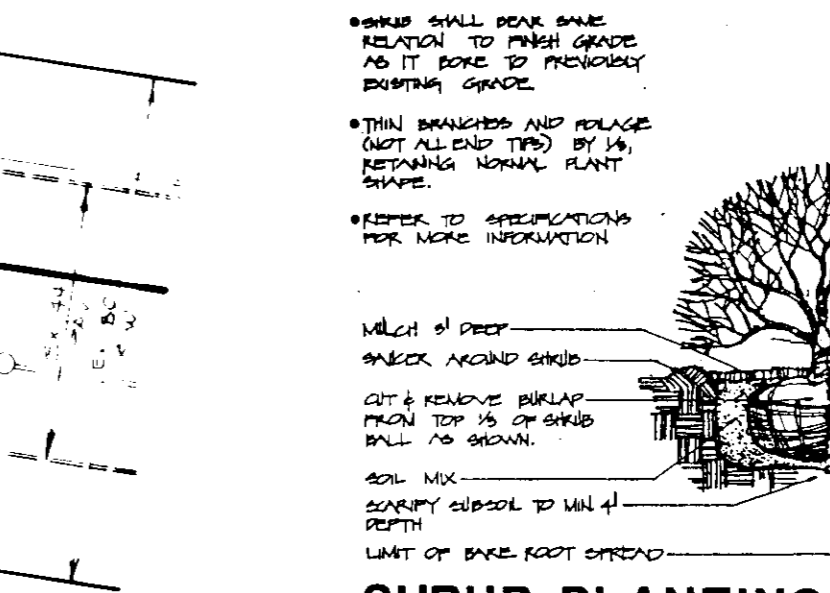 • SHRUB SHALL BEAR SAME
RELATION TO FINISH GRADE
AS IT BORE TO PREVIOUSLY
EXISTING GRADE
• THIN BRANCHES AND FOLIAGE
(NOT ALL END TIPS) BY 1/3,
RETAINING NORMAL PLANT
SHAPE.
• REFER TO SPECIFICATIONS
FOR MORE INFORMATION
MULCH 3" DEEP
SAUCER AROUND SHRUB
CUT & REMOVE BURLAP
FROM TOP 1/3 OF SHRUB
BALL AS SHOWN.
SOIL MIX
SCARIFY SUBSOIL TO MIN 4"
DEPTH
LIMIT OF BARE ROOT SPREAD
SHRUB PLANTING